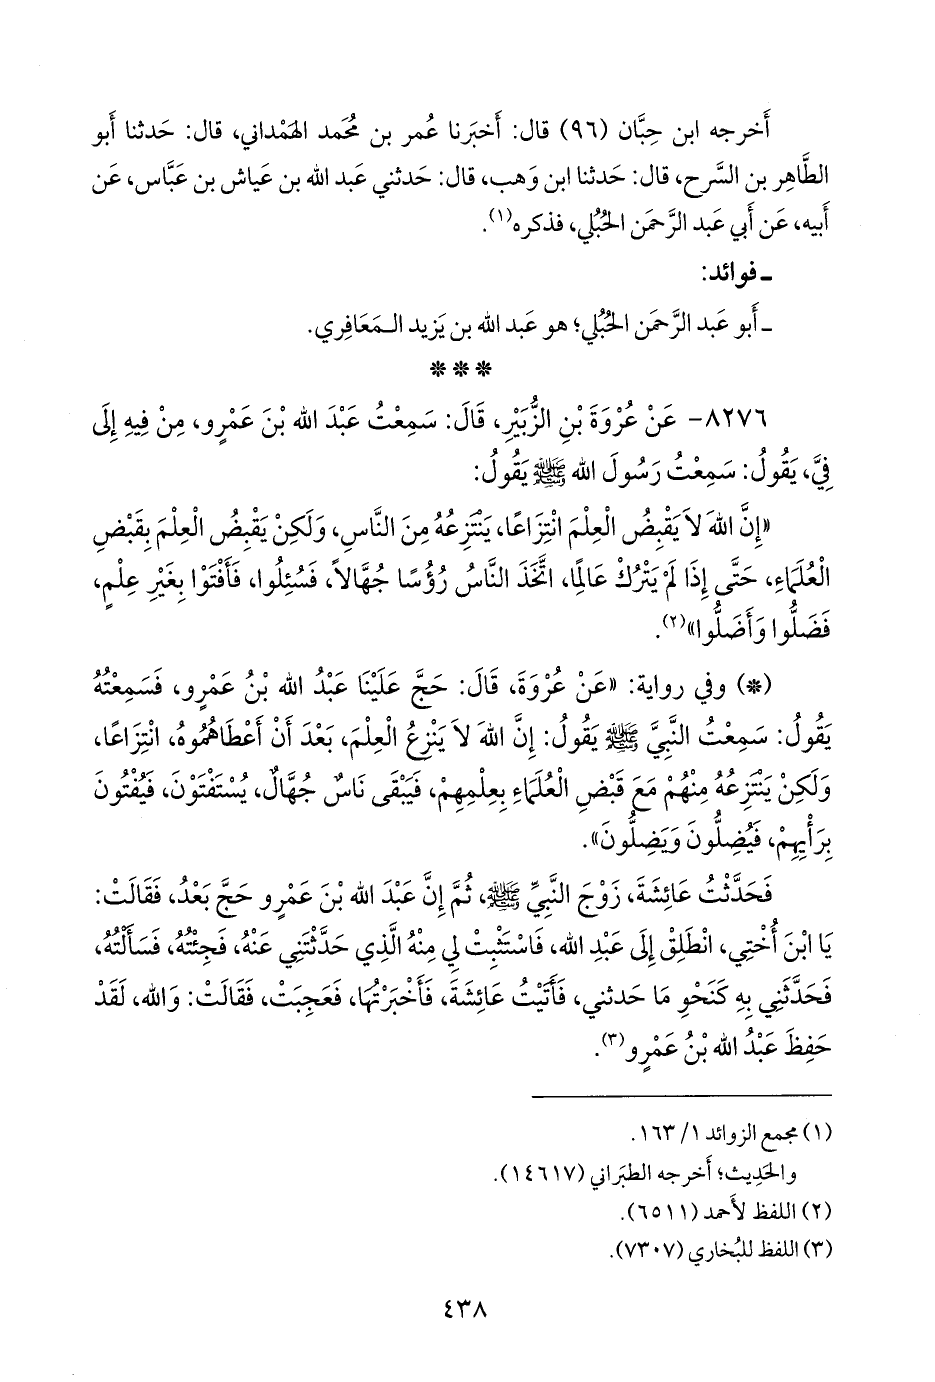 أَخرجه ابن حِبَّان (٩٦) قال: أَخبَرنا عُمر بن مُحَمد الهَمْداني، قال: حَدثنا أَبو
الطَّاهِر بن السَّرح، قال: حَدثنا ابن وَهب، قال: حَدثني عَبد الله بن عَياش بن عَبَّاس، عَن
أَبيه، عَن أَبي عَبد الرَّحمَن الحُبُلي، فذكره(١).
ـ فوائد:
ـ أَبو عَبد الرَّحمَن الحُبُلي؛ هو عَبد الله بن يَزيد الـمَعَافِري.
* * *
٨٢٧٦- عَنْ عُرْوَةَ بْنِ الزُّبَيْرِ، قَالَ: سَمِعْتُ عَبْدَ الله بْنَ عَمْرٍو، مِنْ فِيهِ إِلَى
فِيَّ، يَقُولُ: سَمِعْتُ رَسُولَ الله ﷺ يَقُولُ:
«إِنَّ اللهَ لاَ يَقْبِضُ الْعِلْمَ انْتِزَاعًا، يَنْتَزِعُهُ مِنَ النَّاسِ، وَلَكِنْ يَقْبِضُ الْعِلْمَ بِقَبْضِ
الْعُلَمَاءِ، حَتَّى إِذَا لَمْ يَتْرُكْ عَالِمًا، اتَّخَذَ النَّاسُ رُؤُسًا جُهَّالاً، فَسُئِلُوا، فَأَفْتَوْا بِغَيْرِ عِلْمٍ،
فَضَلُّوا وَأَضَلُّوا»(٢).
(*) وفي رواية: «عَنْ عُرْوَةَ، قَالَ: حَجَّ عَلَيْنَا عَبْدُ الله بْنُ عَمْرٍو، فَسَمِعْتُهُ
يَقُولُ: سَمِعْتُ النَّبِيَّ ﷺ يَقُولُ: إِنَّ اللهَ لاَ يَنْزِعُ الْعِلْمَ، بَعْدَ أَنْ أَعْطَاهُمُوهُ، انْتِزَاعًا،
وَلَكِنْ يَنْتَزِعُهُ مِنْهُمْ مَعَ قَبْضِ الْعُلَمَاءِ بِعِلْمِهِمْ، فَيَبْقَى نَاسٌ جُهَّالٌ، يُسْتَفْتَوْنَ، فَيُفْتُونَ
بِرَأْيِهِمْ، فَيُضِلُّونَ وَيَضِلُّونَ».
فَحَدَّثْتُ عَائِشَةَ، زَوْجَ النَّبِيِّ ﷺ، ثُمَّ إِنَّ عَبْدَ الله بْنَ عَمْرٍو حَجَّ بَعْدُ، فَقَالَتْ:
يَا ابْنَ أُخْتِي، انْطَلِقْ إِلَى عَبْدِ الله، فَاسْتَثْبِتْ لِي مِنْهُ الَّذِي حَدَّثْتَنِي عَنْهُ، فَجِئْتُهُ، فَسَأَلْتُهُ،
فَحَدَّثَنِي بِهِ كَنَحْوِ مَا حَدثني، فَأَتَيْتُ عَائِشَةَ، فَأَخْبَرْتُهَا، فَعَجِبَتْ، فَقَالَتْ: وَالله، لَقَدْ
حَفِظَ عَبْدُ الله بْنُ عَمْرٍو(٣).
(١) مجمع الزوائد ١/ ١٦٣.
والحَدِيث؛ أَخرجه الطبَراني (١٤٦١٧).
(٢) اللفظ لأَحمد (٦٥١١).
(٣) اللفظ للبُخاري (٧٣٠٧).
٤٣٨